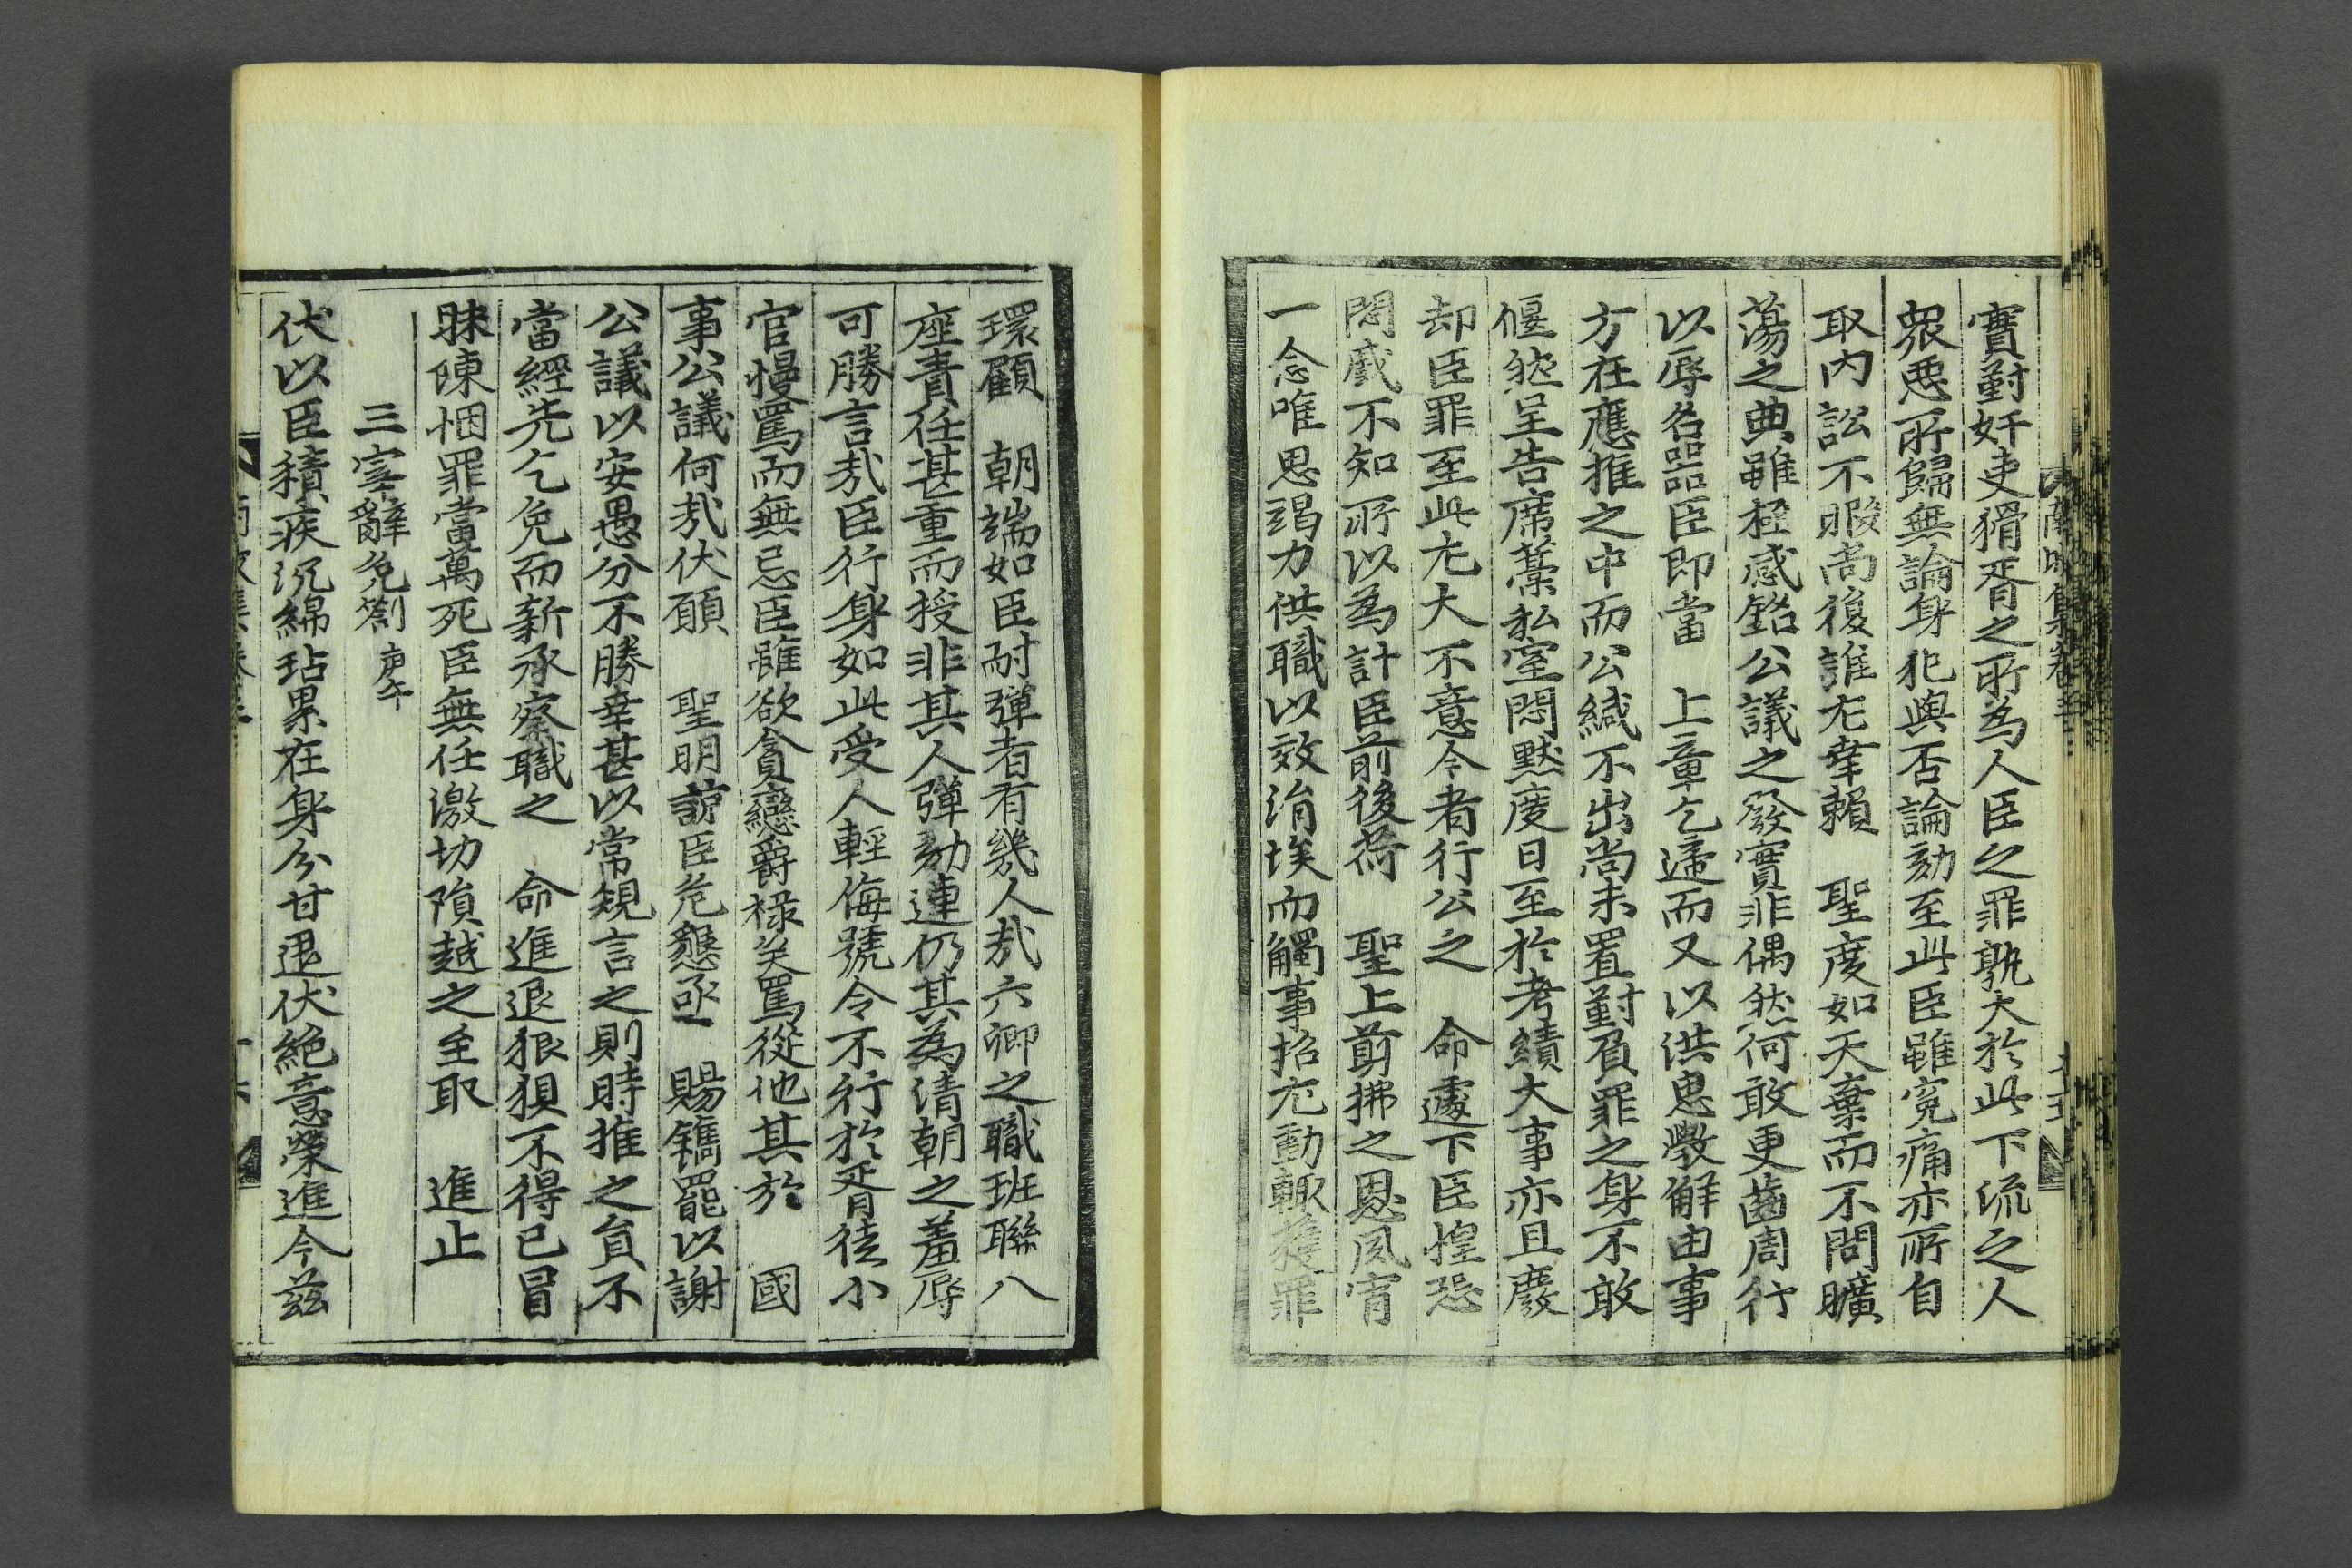 實對奸吏猾胥之所為人臣之罪孰大於此下流之人
衆惡所歸無論身犯與否論劾至此臣雖寃痛亦所自
取內訟不暇尚復誰尤幸賴　聖度如天棄而不問曠
蕩之典雖極感銘公議之發實非偶然何敢更齒周行
以辱名器臣即當　上章乞遞而又以洪思斅解由事
方在應推之中而公緘不出尚未置對負罪之身不敢
偃然呈告席藁私室悶默度日至於考績大事亦且廢
却臣罪至此尤大不意今者行公之　命遽下臣惶恐
悶蹙不知所以為計臣前後荷　聖上剪拂之恩夙宵
一念唯思竭力供職以效涓埃而觸事招尤動輒獲罪
環顧　朝端如臣耐彈者有幾人哉六卿之職班聯八
座責任甚重而授非其人彈劾連仍其為清朝之羞辱
可勝言哉臣行身如此受人輕侮號令不行於胥徒小
官慢罵而無忌臣雖欲貪戀爵祿笑罵從他其於　國
事公議何哉伏願　聖明諒臣危懇亟　賜鐫罷以謝
公議以安愚分不勝幸甚以常規言之則時推之負不
當經先乞免而新承察職之　命進退狼狽不得已冒
昧陳悃罪當萬死臣無任激切隕越之至取　進止
三宰辭免箚 庚午
伏以臣積疾沉綿玷累在身分甘退伏絶意榮進今茲